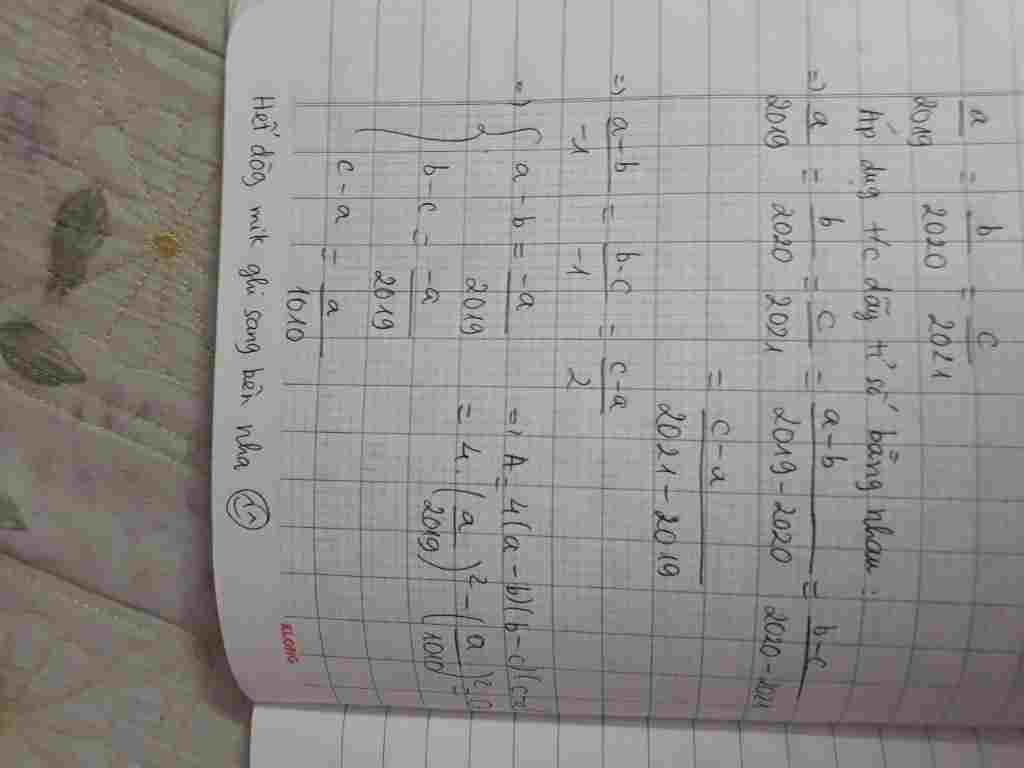 a/2019 = b/2020 = c/2021
Áp dụg t/c dãy tỉ số bằng nhau :
=> a/2019 = b/2020 = c/2021 = a-b/2019-2020 = b-c/2020-2021
= c-a/2021-2019
=> a-b/-1 = b-c/-1 = c-a/2
=> { a-b = -a/2019 => A = 4(a-b)(b-c)
b-c = -a/2019 = 4.(a/2019)² - (a/
c-a = a/1010
Hết dòng mik ghi sang bên nha
KLONG